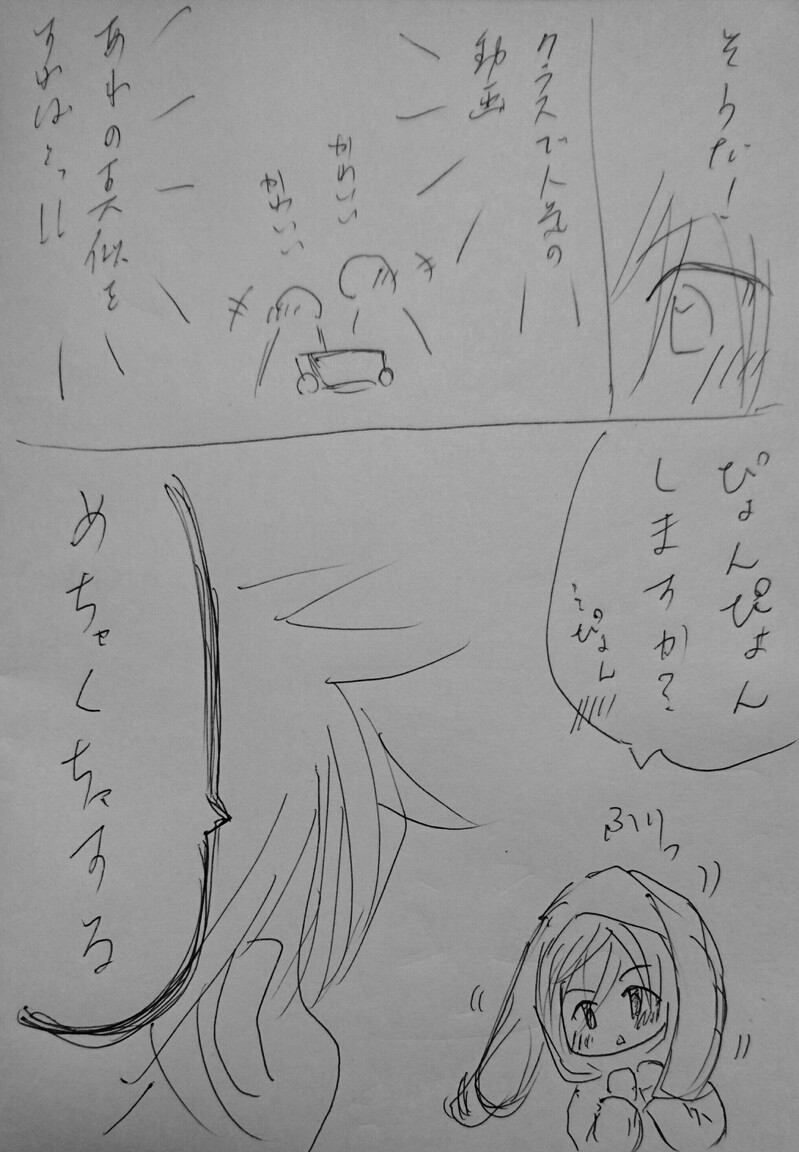 そうだ!
クラスで人気の
動画
かわいい
かわいい
あれの真似を
すればっ!!
ぴょんぴょん
しますか?
ぴょん
ふりっ
めちゃくちゃする